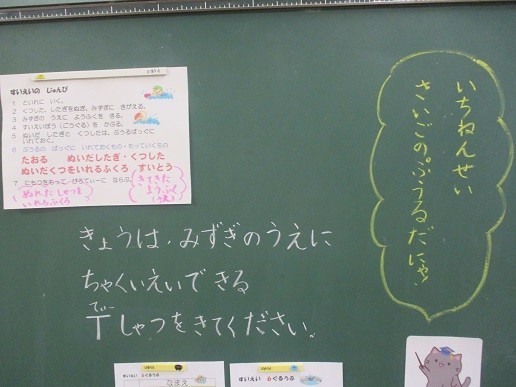 すいえいの じゅんび
1 といれに いく。
2 くつした、したぎをぬぎ、みずぎに きがえる。
3 みずぎの うえに ようふくを きる。
4 すいえいぼう(ごうぐる)を かぶる。
5 ぬいだ したぎと くつしたは、ぷうるばっぐに
いれておく。
6 ぷうるの ばっぐに いれておくもの・もっていくもの
たおる ぬいだしたぎ・くつした
ぬいだくつをいれるふくろ すいとう
7 にもつをもって ぴろてぃーに ならぶ。
ぬれた しゃつを
いれるふくろ
きてきた
ようふく
(うえ)
いちねんせい
さいごの。ぷうるだにゃ!
きょうは、みずぎのうえに
ちゃくいえいできる
Tしゃつをきてください。
てぃー
なまえ
すいえい 6ぐるうぷ